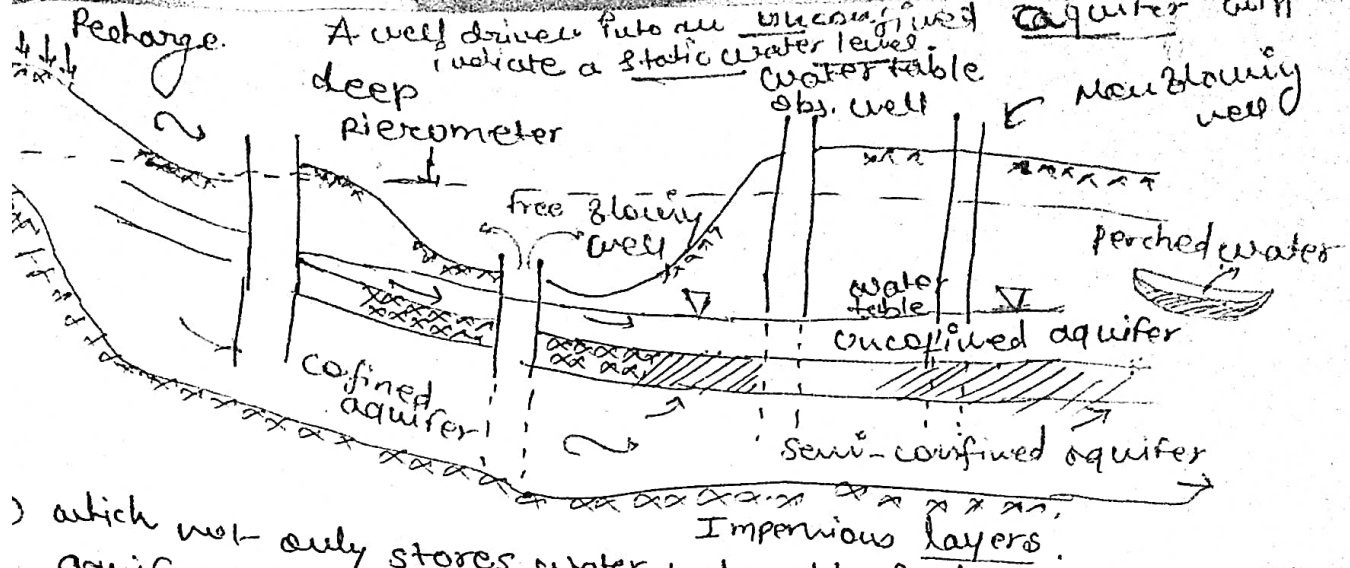 Recharge.
A well driven into an unconfined aquifer will
indicate a static water level.
deep
piezometer
water table
obs. well
Non flowing
well
free flowing
well
Perched water
water
table
Uncofined aquifer
cofined
aquifer
Semi-confined aquifer
Impervious layers.
) which not only stores water